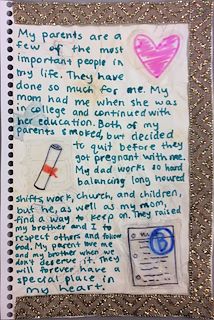 My parents are a
few of the most
important people in
my life. They have
done so much for me. My
mom had me when she was
in college and continued with
her education. Both of my
parents smoked, but decided
to quit before they
got pregnant with me.
My dad works so hard
balancing long houred
shifts, work, church, and children,
but he, as well as my mom,
find a way to keep on. They raised
my brother and I to
respect others and follow
God. My parent love me
and my brother when we
don't deserve it. They
will forever have a
special place in
my heart.